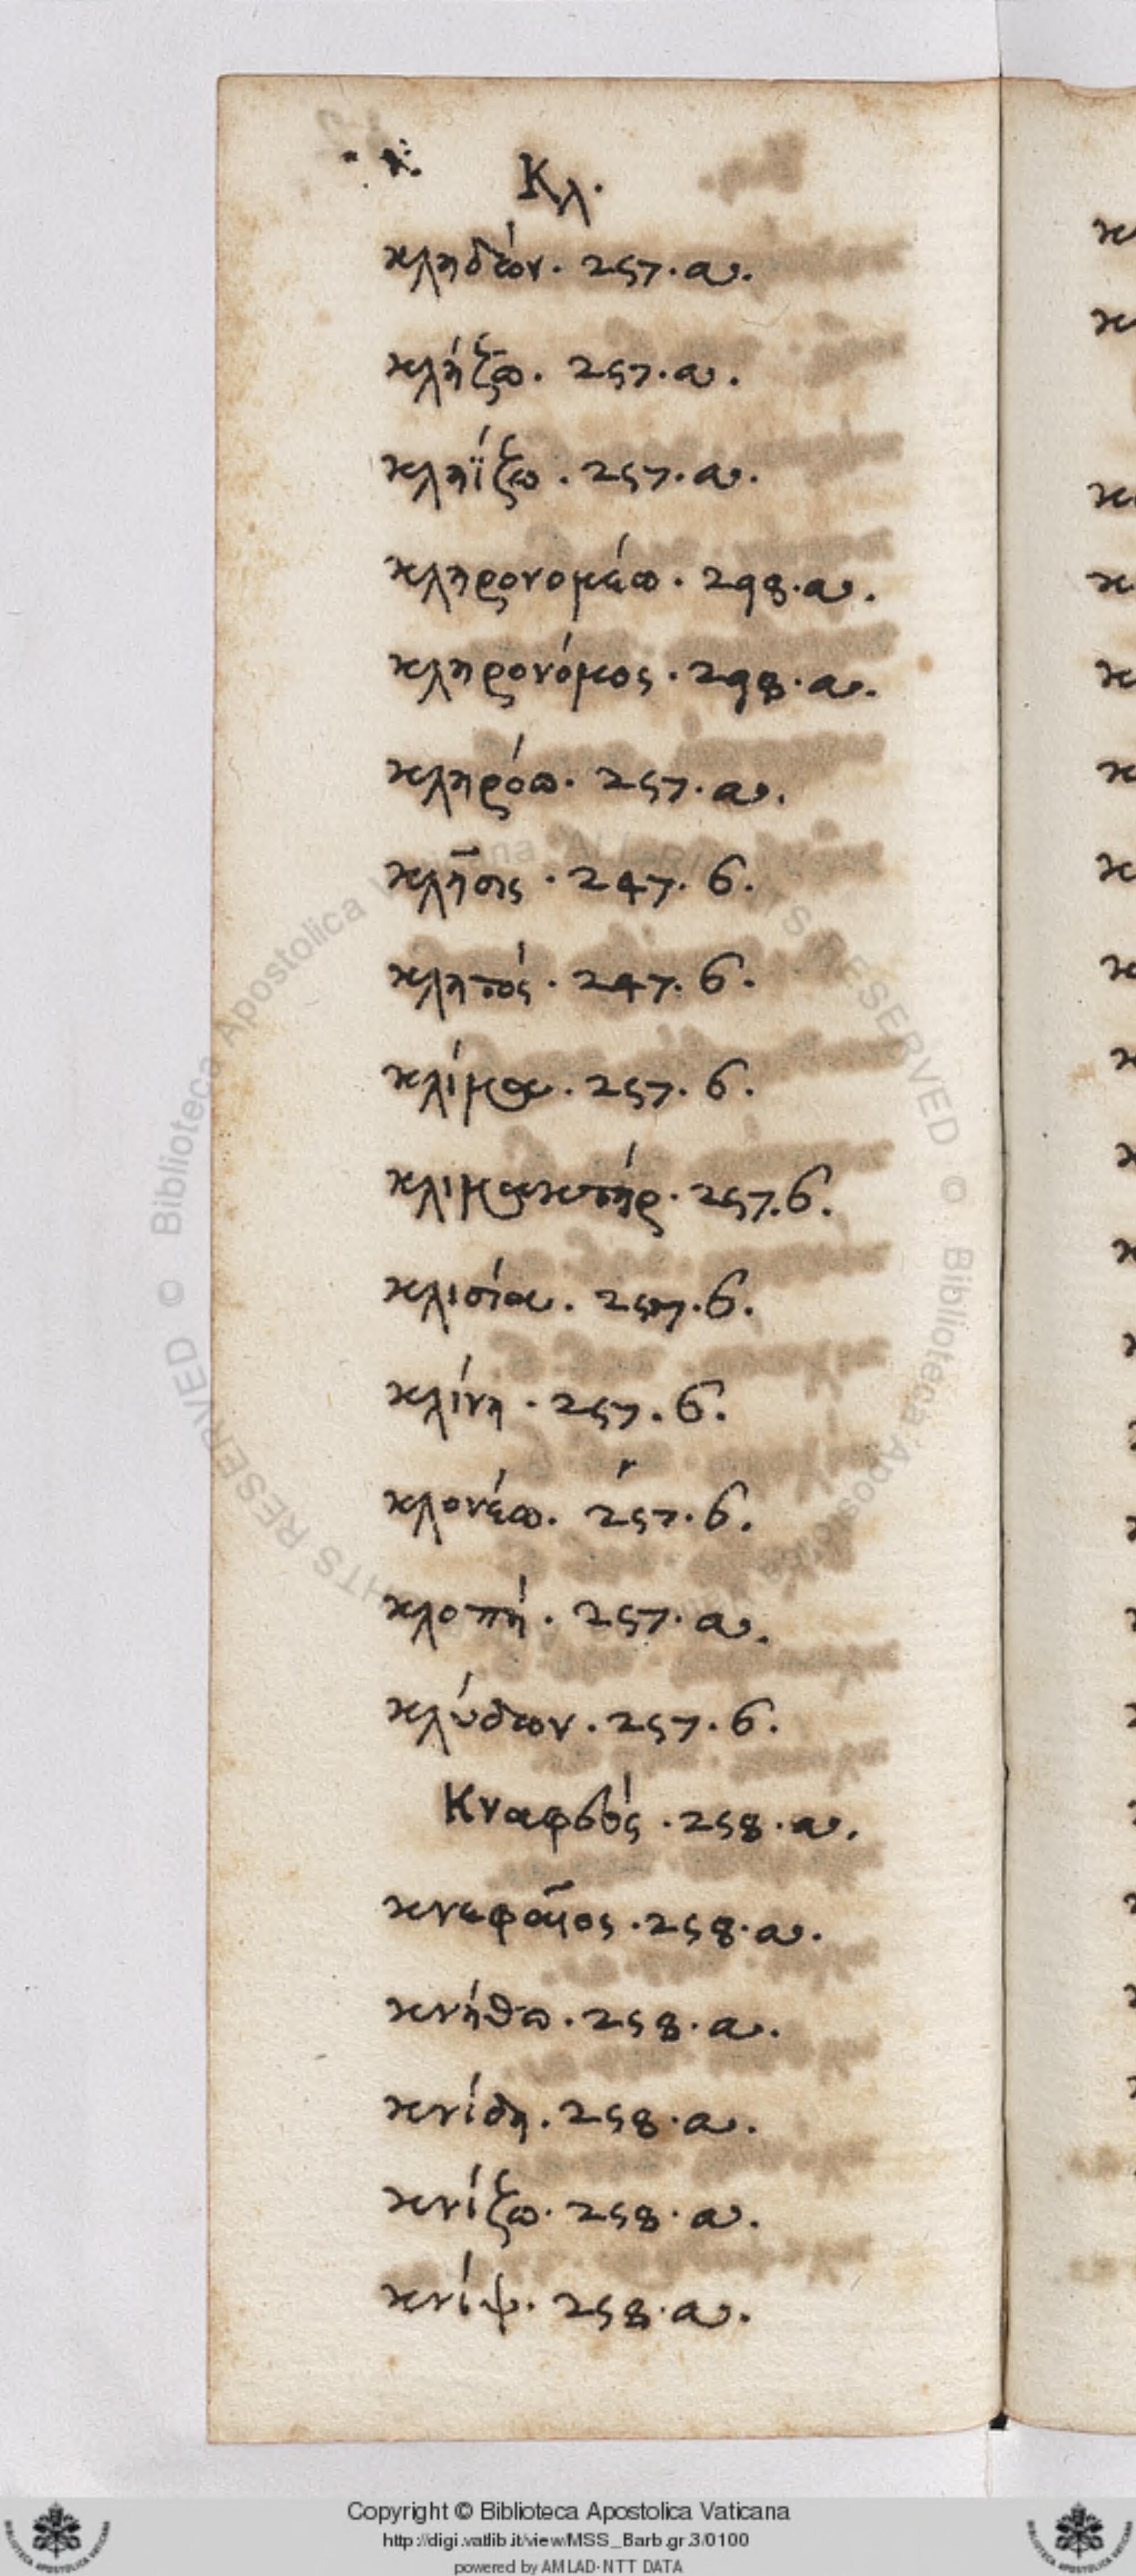 Κλ.
κληδών. 257. α.
κλήζω. 257. α.
κληΐζω. 257. α.
κληρονομέω. 298. α.
κληρονόμος. 298. α.
κληρόω. 257. α.
κλῆσις. 247. 6.
κλητός. 247. 6.
κλίμα. 257. 6.
κλιμακτήρ. 257. 6.
κλισία. 257. 6.
κλίνη. 257. 6.
κλονέω. 257. 6.
κλοπή. 257. α.
κλύδων. 257. 6.
Κναφεύς. 258. α.
κνεφαῖος. 258. α.
κνήθω. 258. α.
κνίδη. 258. α.
κνίζω. 258. α.
κνίψ. 258. α.
Copyright © Biblioteca Apostolica Vaticana
http://digi.vatlib.it/view/MSS_Barb.gr.3/0100
powered by AMLAD-NTT DATA